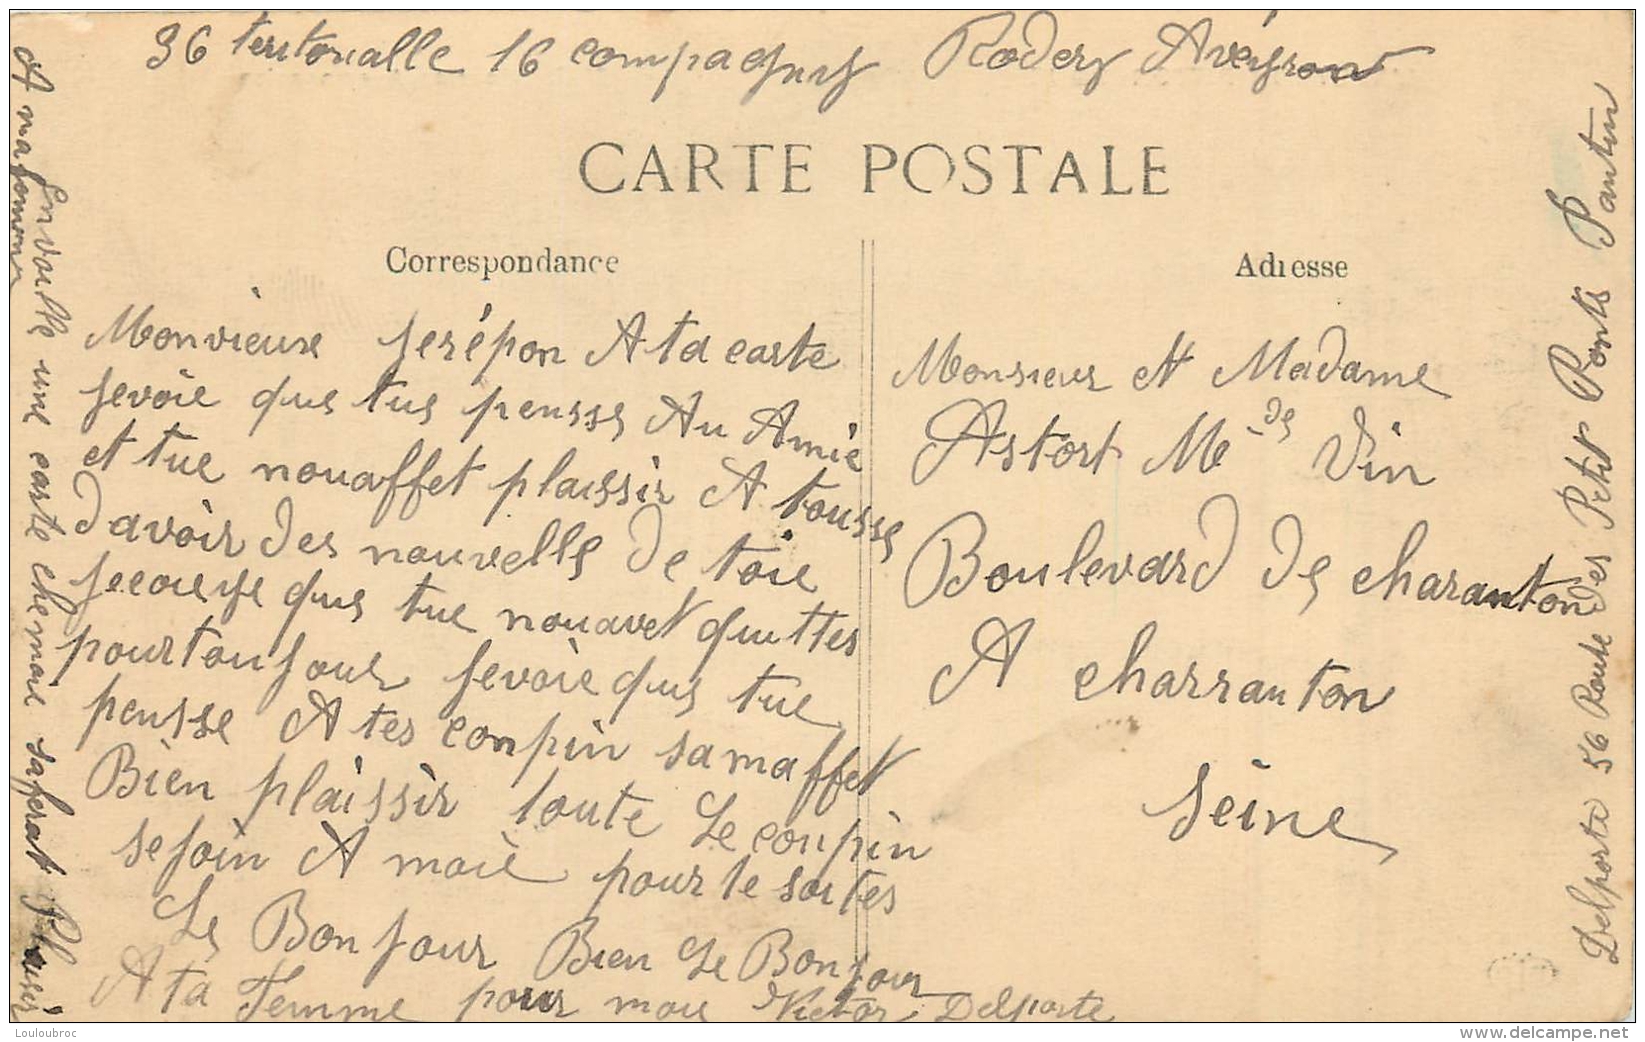 36 teritorialle 16 compagny Rodez Aveyron
CARTE POSTALE
Correspondance
Adresse
Monvieux Jerépon A ta carte
Jevoie que tus pensse Au Amie
et tue nouaffet plaissir A tousse
davoir des nouvelle de toie
que tue nouavet quittes
pourtoujour Jevoie que tue
pensse A tes conpin samaffet
Bien plaissir toute Le conpin
sejoin A moie pour te soites
Le Bonjour Bien Le Bonjour
A ta Femme pour moie Victor Delporte
Monsieur et Madame
Astort Md de Vin
Boulevard de charanton
A charranton
Seine
A mafomme
Envoille une carte chemoie saferat Plaisir
Delporte 56 Route des Petit Ponts Pantin
Louloubroc
www.delcampe.net